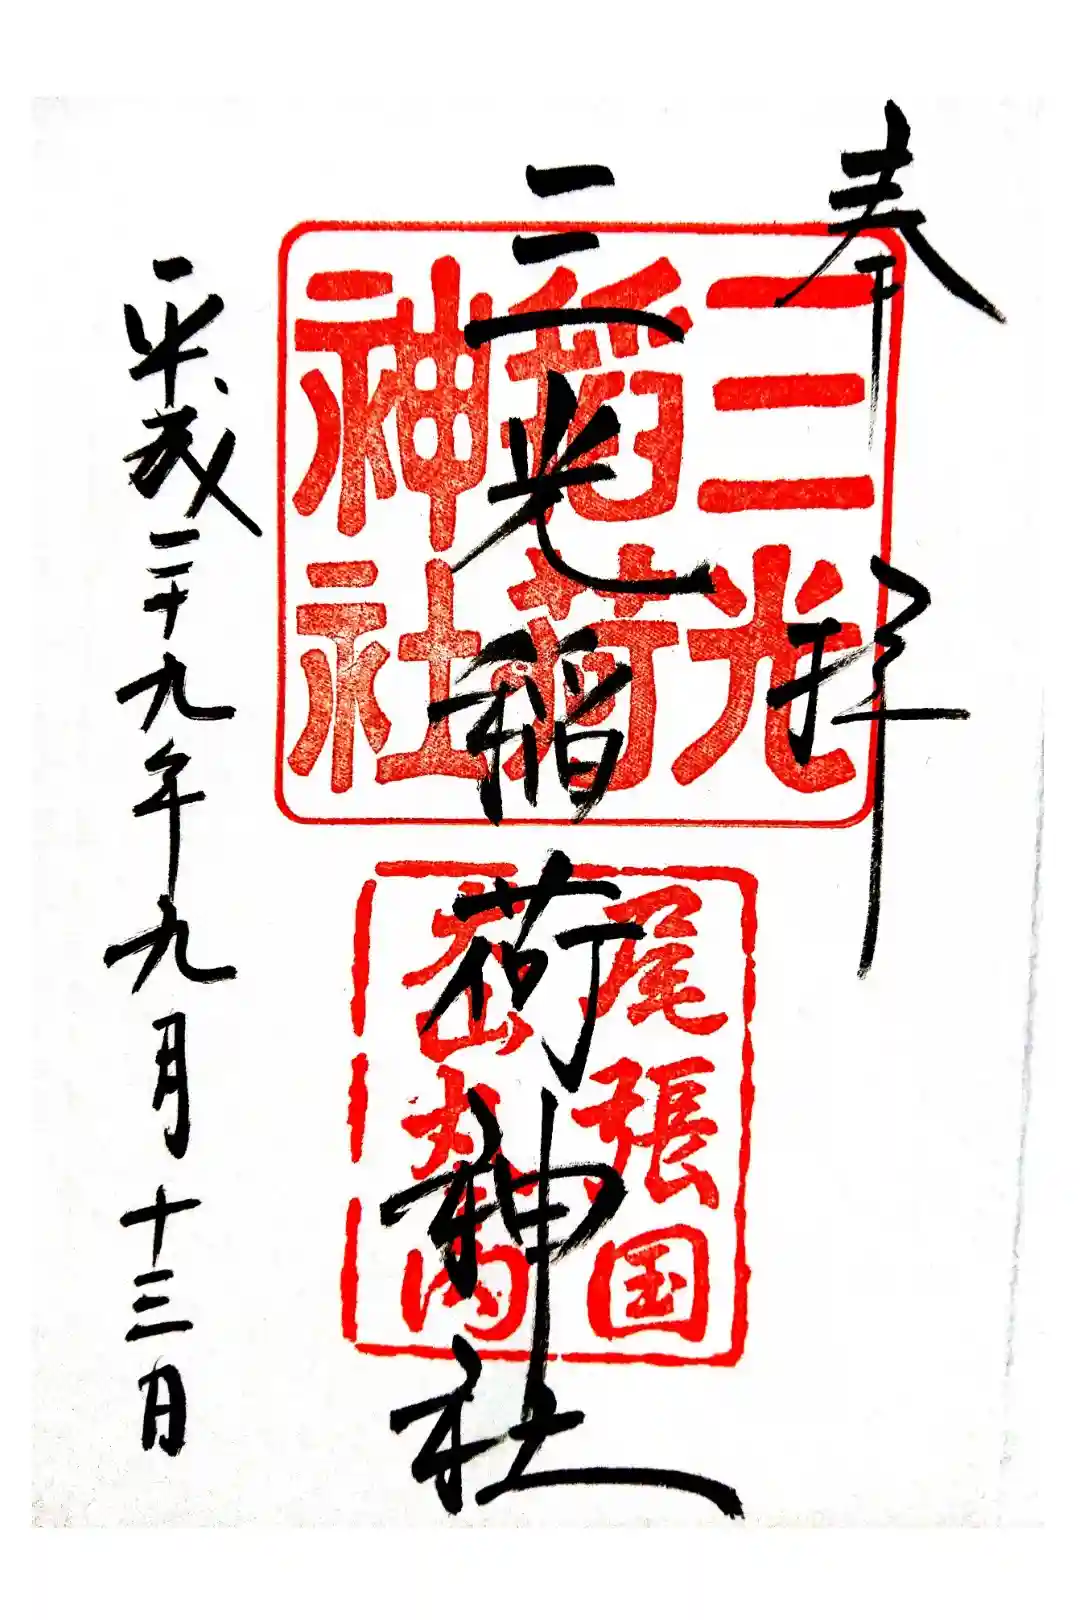 奉拝
三光稲荷神社
平成二十九年九月十三日
三光
稲荷
神社
尾張国
犬山城内